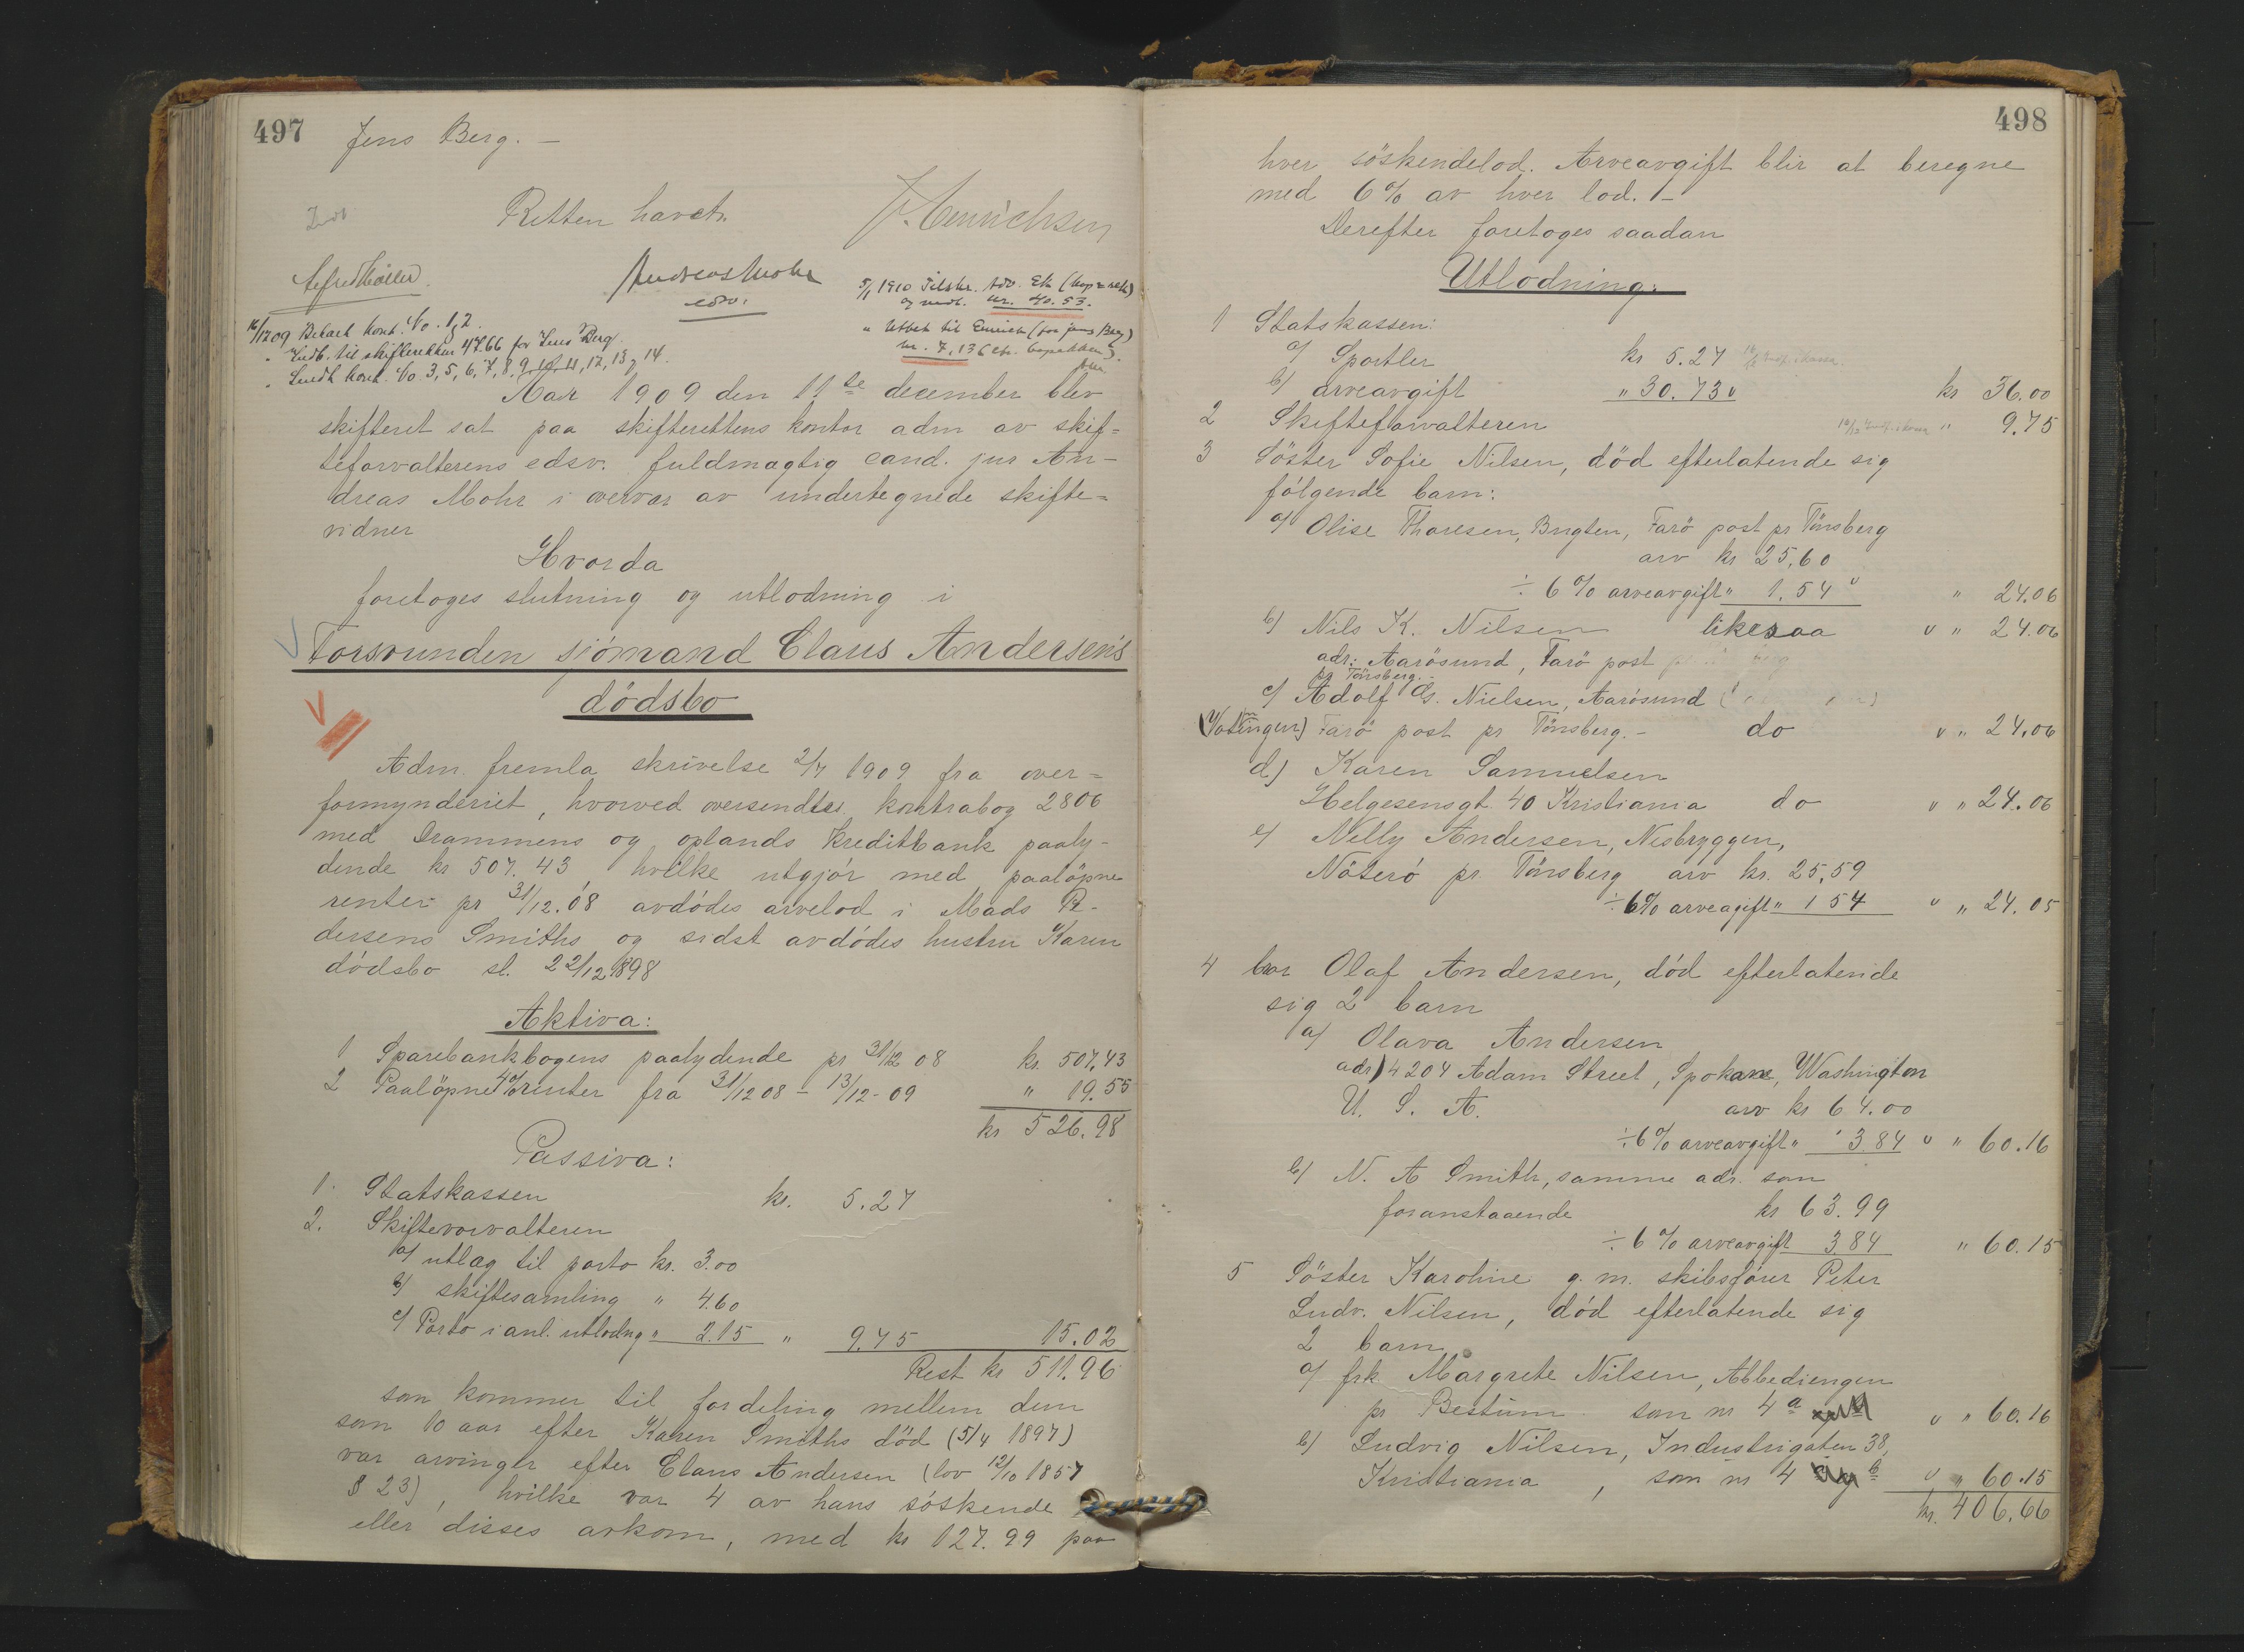 497
Jens Berg. –
Retten hævet.
J. Henrichsen
Alfred Møller.
Andreas Mohr
edsv.
16/12 09 Betalt kont. No. 1, 2.
" Indb. til skifterekken 47.66 for Jens Berg.
" Sendt kont. No. 3, 5, 6, 7, 8, 9, 10, 11, 12, 13, 14.
5/1 1910 Tilskr. Adv.
kr. 40.53.
kr. 7,13
Aar 1909 den 11te december blev
skifteret sat paa skifterettens kontor adm av skif=
teforvalterens edsv. fuldmægtig cand. jur An-
dreas Mohr i overvær av undertegnede skifte=
vidner
Hvorda
foretoges slutning og utlodning i
Forsvunden sjömand Claus Andersens
dödsbo
Adm. fremla skrivelse 2/7 1909 fra over=
formynderiet, hvorved oversendtes kontrabog 2806
med Drammens og oplands kreditbank paaly-
dende kr 507.43 hvilke utgjör med paalöpne
renter pr 31/12.08 avdödes arvelod i Mads Pe-
dersens Smiths og sidst avdödes hustru Karen
dödsbo sl. 22/12 1898
Aktiva:
1 Sparebankbogens paalydende pr 31/12 08 kr. 507.43
2 Paalöpne 4% renter fra 31/12 08 – 13/12 - 09 " 19.55
kr 526.98
Passiva:
1. Statskassen kr. 5.27
2. Skiftevorvalteren
a/ utlæg til porto kr. 3.00
b/ skiftesamling " 4.60
c/ Porto i anl. utlodng " 2.15 " 9.75 15.02
Rest kr 511.96
som kommer til fordeling mellem dem
som 10 aar efter Karen Smiths död (5/4 1897)
var arvinger efter Claus Andersen (lov 12/10 1857
§ 23), hvilke var 4 av hans söskende
eller disses avkom, med kr 127.99 paa
498
hver söskendelod. Arveavgift blir at beregne
med 6% av hver lod. –
Derefter foretoges saadan
Utlodning:
1 Statskassen:
a/ Sportler kr 5.27
b/ arveavgift " 30.73 kr 36.00
2 Skifteforvalteren " 9.75
3 Söster Sofie Nilsen, död efterlatende sig
fölgende barn:
a/ Olise Thoresen, Brygten, Farö post pr Tönsberg
arv kr 25,60
÷ 6% arveavgift " 1.54 " 24.06
b/ Nils K. Nilsen likesaa " 24.06
adr: Aarösund, Farö post
pr Tönsberg. –
c/ Adolf G. Nielsen, Aarösund
Farö post pr Tönsberg. – do " 24.06
d) Karen Samuelsen
Helgesensgt. 40 Kristiania do " 24.06
e/ Nelly Andersen, Nesbryggen,
Nöterö pr. Tönsberg arv kr. 25,59
÷ 6% arveagift " 1 54 " 24.05
4 bror Olaf Andersen, död efterlatende
sig 2 barn
a/ Olava Andersen
adr) 4204 Adam Street, Spokane, Washington
U. S. A. arv kr 64.00
÷ 6% arveavgift " 3.84 " 60.16
b/ N. A Smith, samme adr. som
foranstaaende kr 63.99
÷ 6% arveavgift 3.84 " 60.15
5 Söster Karoline g. m. skibsförer Peter
Ludv. Nilsen, död efterlatende sig
2 barn
a/ frk Margrete Nilsen, Abbediengen
pr Bestum som nr 4 a " 60.16
b/ Ludvig Nilsen, Industrigaten 38,
Kristiania, som nr 4 b " 60.15
kr. 406.66